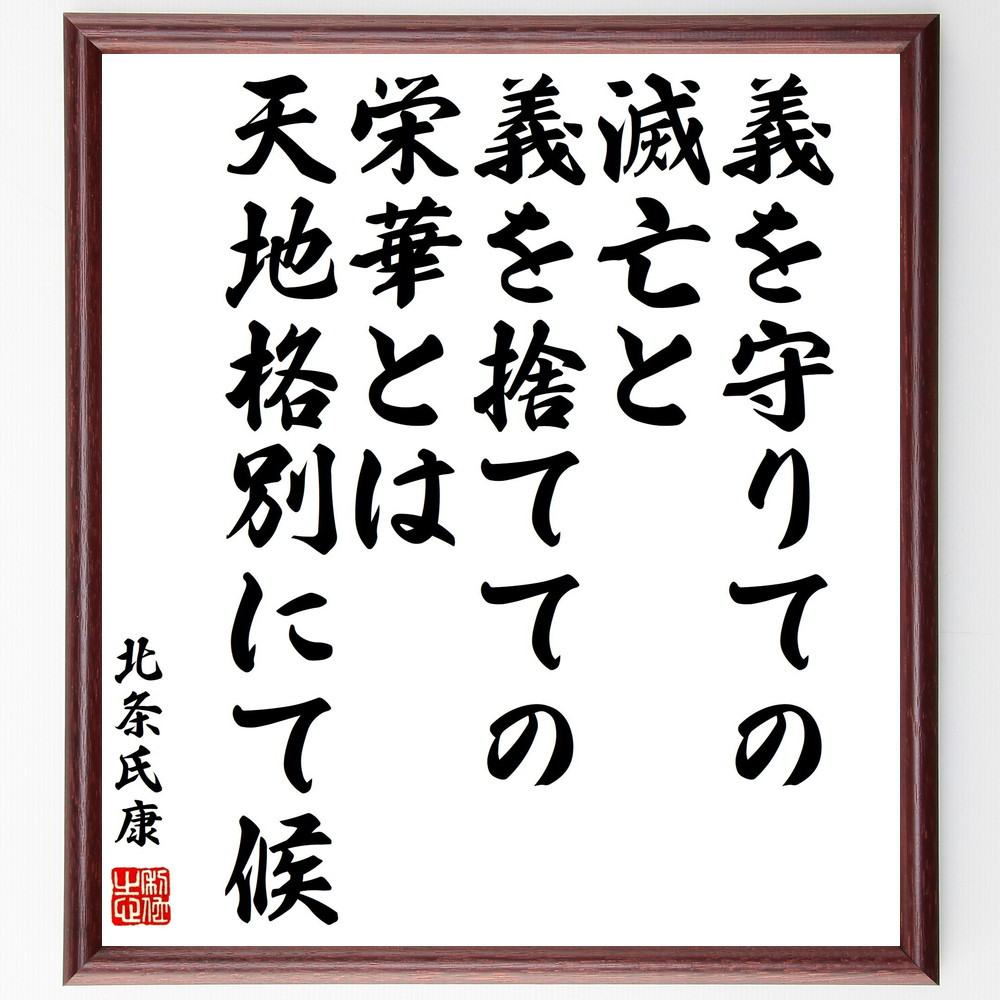 義を守りての
滅亡と
義を捨てての
栄華とは
天地格別にて候
北条氏康